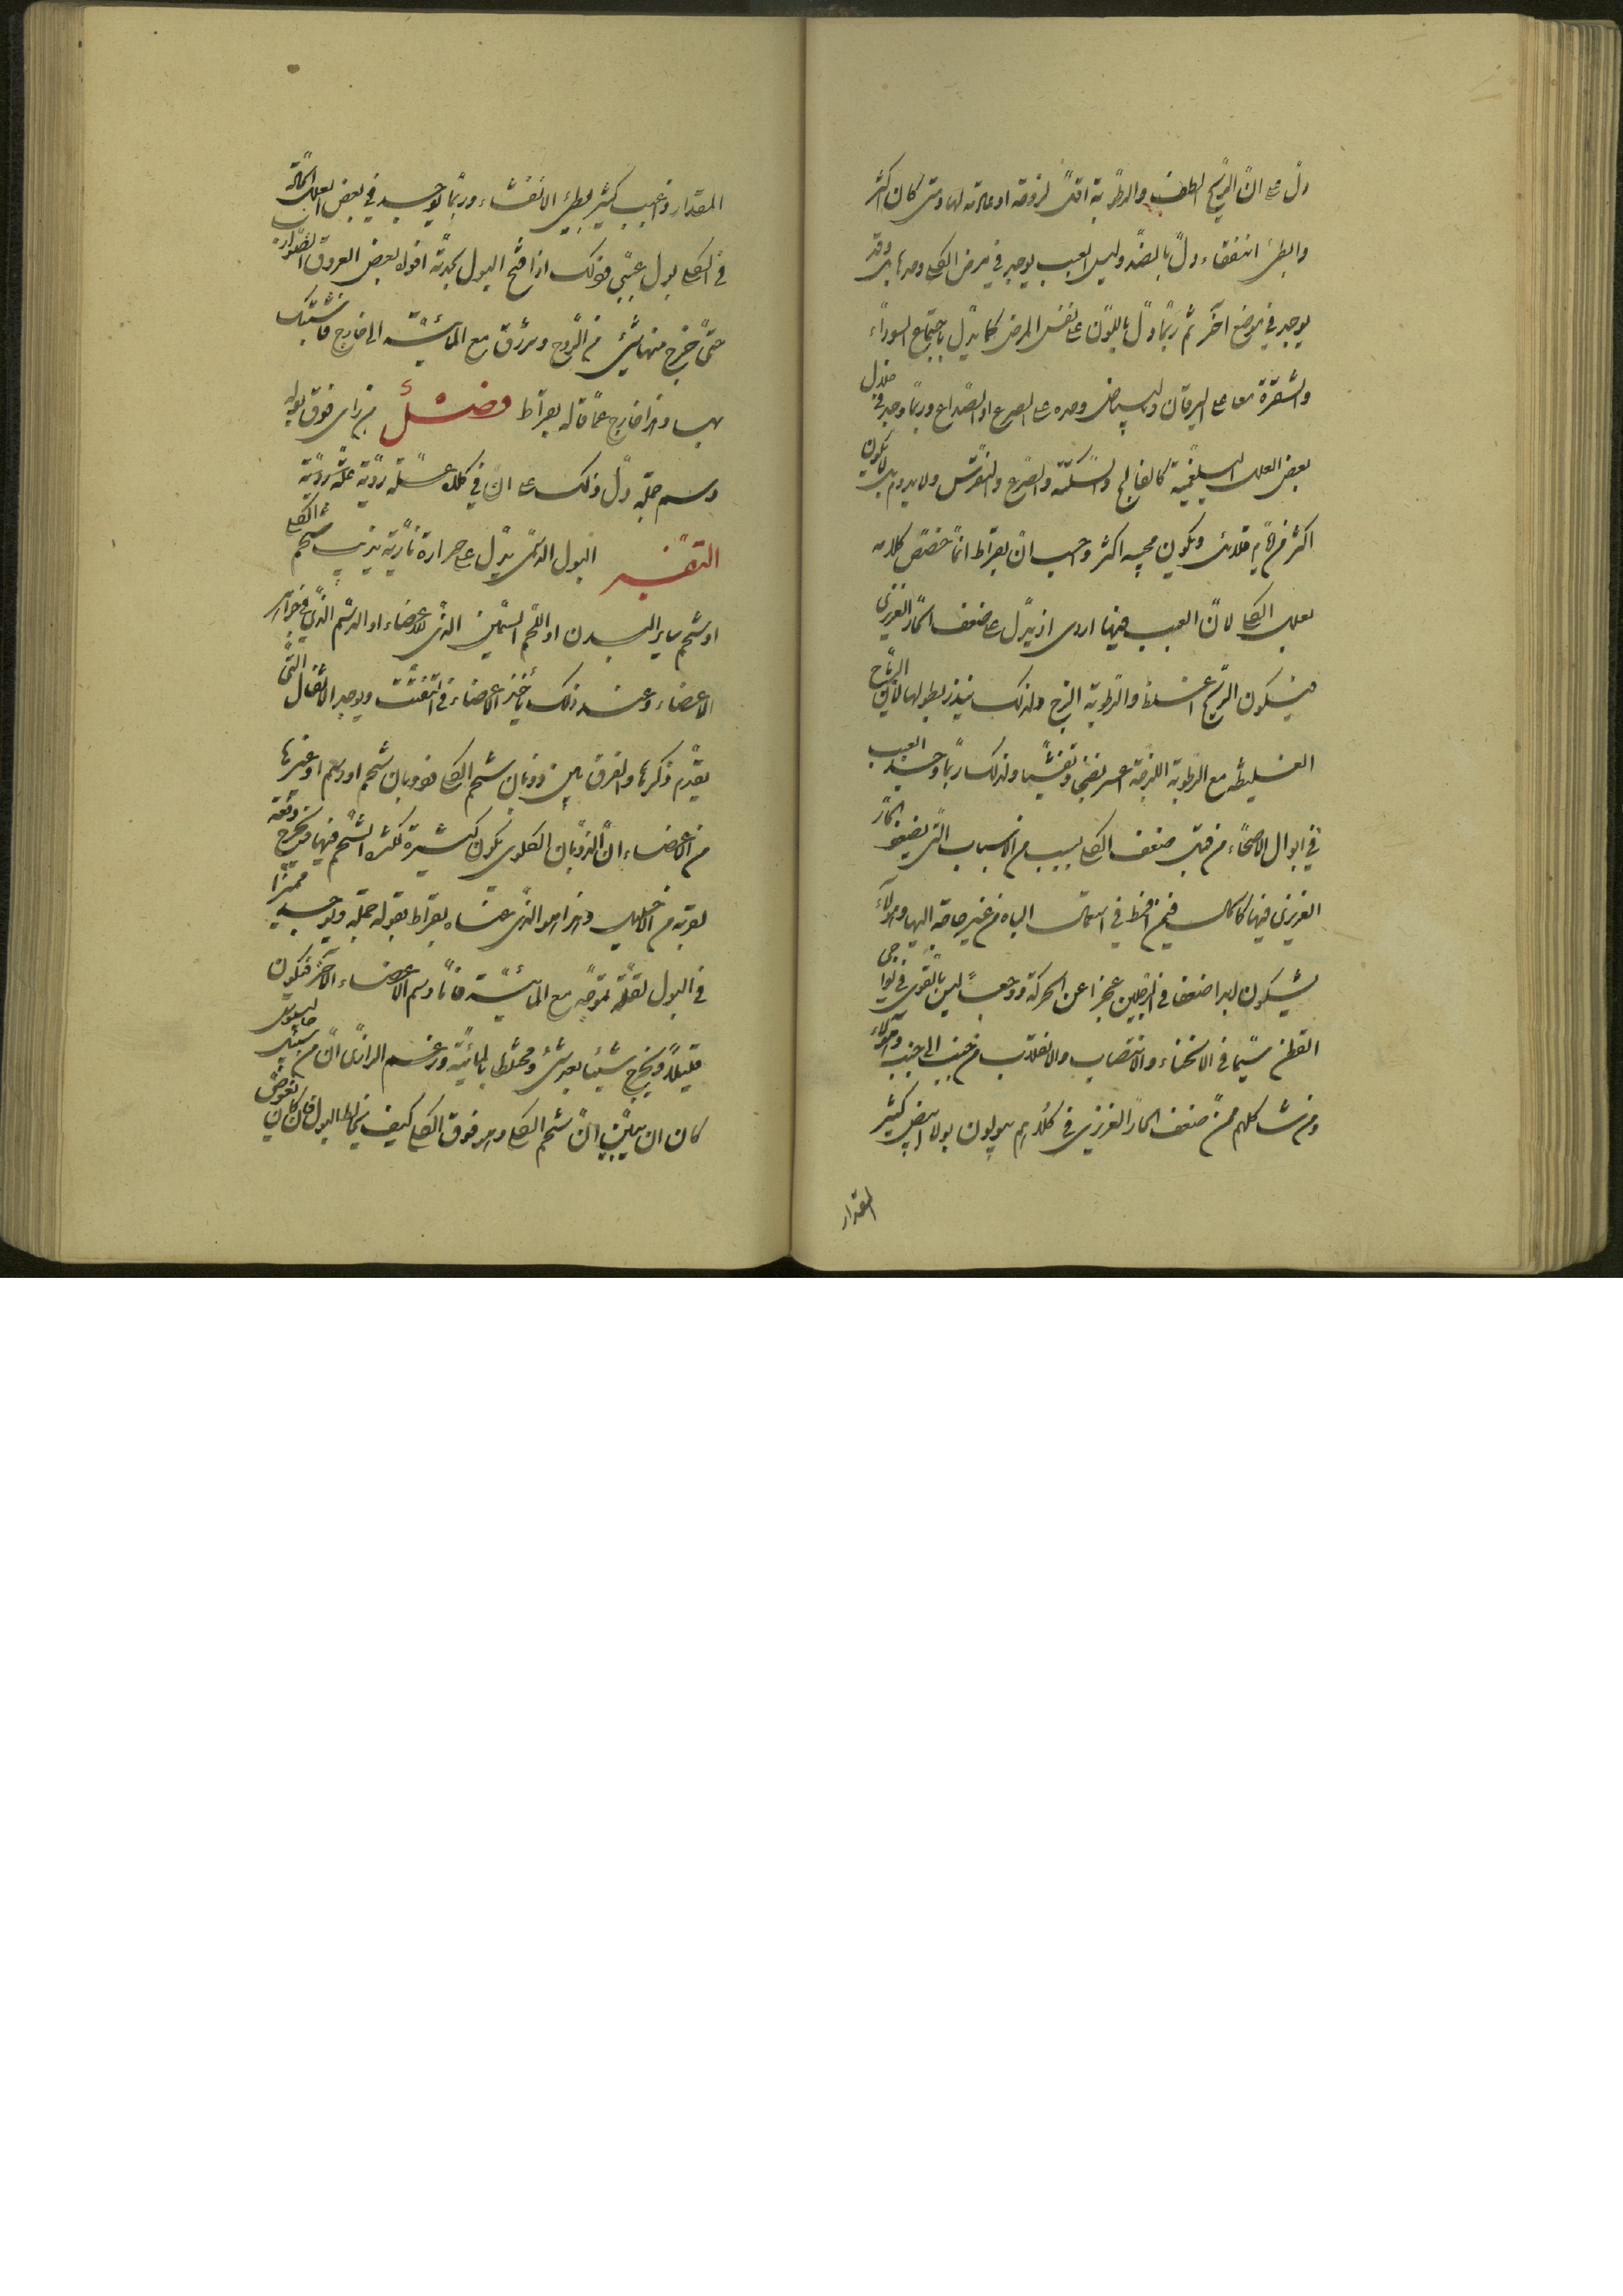 دل على ان الريح الطف والرطوبة اقل لزوجة او عادمة لها ومتى كان اكثر
والبطئ انفقاء دل بالضد وليس العبب يوجد في مرض الكلى وحدها بل وقد
يوجد في موضع آخر ثم ربما دل باللون على نفس المرض كما يدل باجتماع السوداء
والشقرة معا على اليرقان والبياض وحده على الصرع او الصداع وربما وجد في
بعض العلل البلغمية كالفالج والسكتة والصرع والنقرس ولا يدوم بل يكون
اكثر من ايام قلائل ويكون مجيه اكثر واحسب ان بقراط انما خصص كلامه
بعلل الكلى لان العبب فيها اردى اذ يدل على ضعف الحار الغريزى
فيكون الريح اغلظ والرطوبة الزج ولذلك ينذر بطولها لان الرياح
الغليظة مع الرطوبة اللزجة اعسر نضجا وتفشيا ولذلك ربما وجد العبب
في ابوال الاصحاء من قبل ضعف الكلى بسبب من الاسباب التى يضعف الحار
الغريزى فيها كالحال فيمن افرط في استعمال الباه من غير حاجة اليها وهولاء
يشكون ابدا ضعفا في الرجلين عجزا عن الحركة ووجعا ليس بالقوى في نواحى
القطن سيما في الانحناء والانتصاب والانقلاب من جنب الى جنب وهولاء
ومن شاكلهم ممن ضعف الحار الغريزى في كلاهم يبولون بولا ابيض كثير
المقدار
المقدار ذا عبب كثير بطئ الانفشاء وربما يوجد في بعض العلل الحادة
في الكلى بول عببى وذلك اذا فتح البول بحدته افواه بعض العروق الضوارب
حتى خرج منها شئ من الروح وتزرق مع المائية الى خارج فاشتبك
بها وهذا خارج عما قاله بقراط فصل من راى فوق بوله
دسم جملة دل ذلك على ان في كلاه علة ردية حادة
التفسير البول الدسمى يدل على حرارة نارية يذيب شحم الكلى
او شحم ساير البدن او اللحم السمين الذى للاعضاء او الدسم الذى في جواهر
الاعضاء وعند ذلك يأخذ الاعضاء في التفتت ويوجد الاثفال التى
تقدم ذكرها والفرق بين ذوبان شحم الكلى وذوبان شحم او دسم او غيرها
من الاعضاء ان الذوبان الكلوى يكون كثيرة لكثرة الشحم فيها ويخرج دفعة
لقربه من الاحليل وهذا هو الذى عناه بقراط بقوله جملة ويوجد مميزا
في البول لقلة تموجه مع المائية فاما دسم الاعضاء الاخر فيكون
قليلا ويخرج شيئا بعد شئ ومختلطا بالمائية وزعم الرازى ان من سبيل جالينوس
كان ان يبين ان شحم الكلى وهو فوق الكلى كيف يخالط البول فان كان يغوص